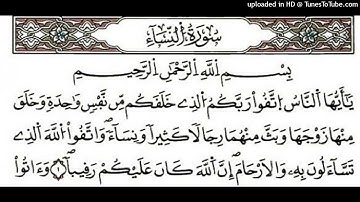 uploaded in HD @ TunesToTube.com
سُورَةُ النِّسَاءِ
بِسْمِ اللَّهِ الرَّحْمَٰنِ الرَّحِيمِ
يَٰٓأَيُّهَا النَّاسُ اتَّقُواْ رَبَّكُمُ الَّذِے خَلَقَكُم مِّن نَّفْسٍ وَٰحِدَةٍ وَخَلَقَ
مِنْهَا زَوْجَهَا وَبَثَّ مِنْهُمَا رِجَالًا كَثِيرًا وَنِسَآءً وَاتَّقُواْ اللَّهَ الَّذِے
تَسَّآءَلُونَ بِهِۦ وَالْأَرْحَامَ إِنَّ اللَّهَ كَانَ عَلَيْكُمْ رَقِيبًا ١ وَءَاتُواْ